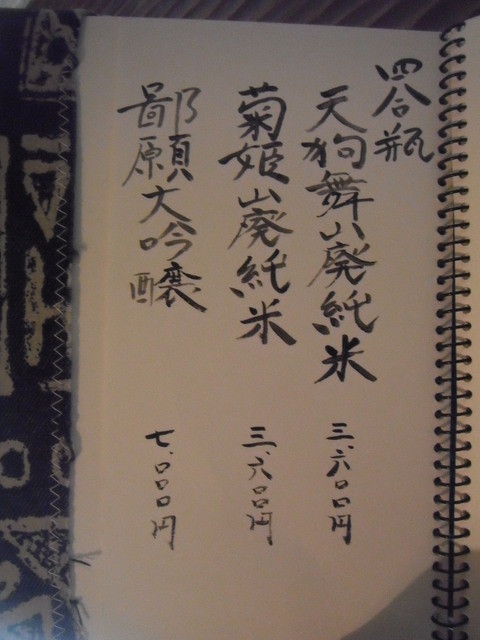 四合瓶
天狗舞山廃純米 三、六〇〇円
菊姫山廃純米 三、六〇〇円
鄙願大吟醸 七、〇〇〇円